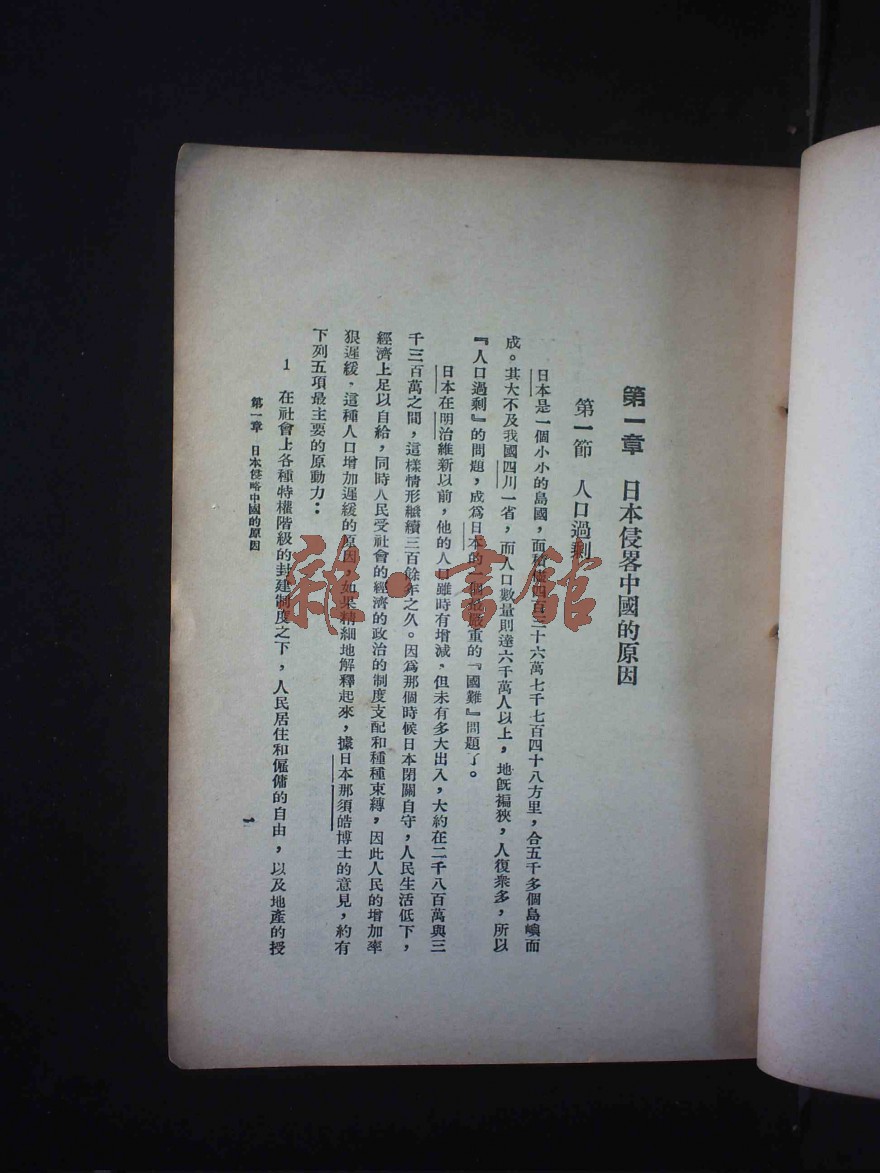 第一章 日本侵畧中國的原因
第一節 人口過剩
日本是一個小小的島國，面積僅四百三十六萬七千七百四十八方里，合五千多個島嶼而
成。其大不及我國四川一省，而人口數量則達六千萬人以上，地旣褊狹，人復衆多，所以
『人口過剩』的問題，成爲日本的一個最嚴重的『國難』問題了。
日本在明治維新以前，他的人口雖時有增減，但未有多大出入，大約在二千八百萬與三
千三百萬之間，這樣情形繼續三百餘年之久。因爲那個時候日本閉關自守，人民生活低下，
經濟上足以自給，同時人民受社會的經濟的政治的制度支配和種種束縛，因此人民的增加率
狠遲緩，這種人口增加遲緩的原因，如果精細地解釋起來，據日本那須皓博士的意見，約有
下列五項最主要的原動力：
1 在社會上各種特權階級的封建制度之下，人民居住和僱傭的自由，以及地產的授
第一章 日本侵略中國的原因
一
雜·書館